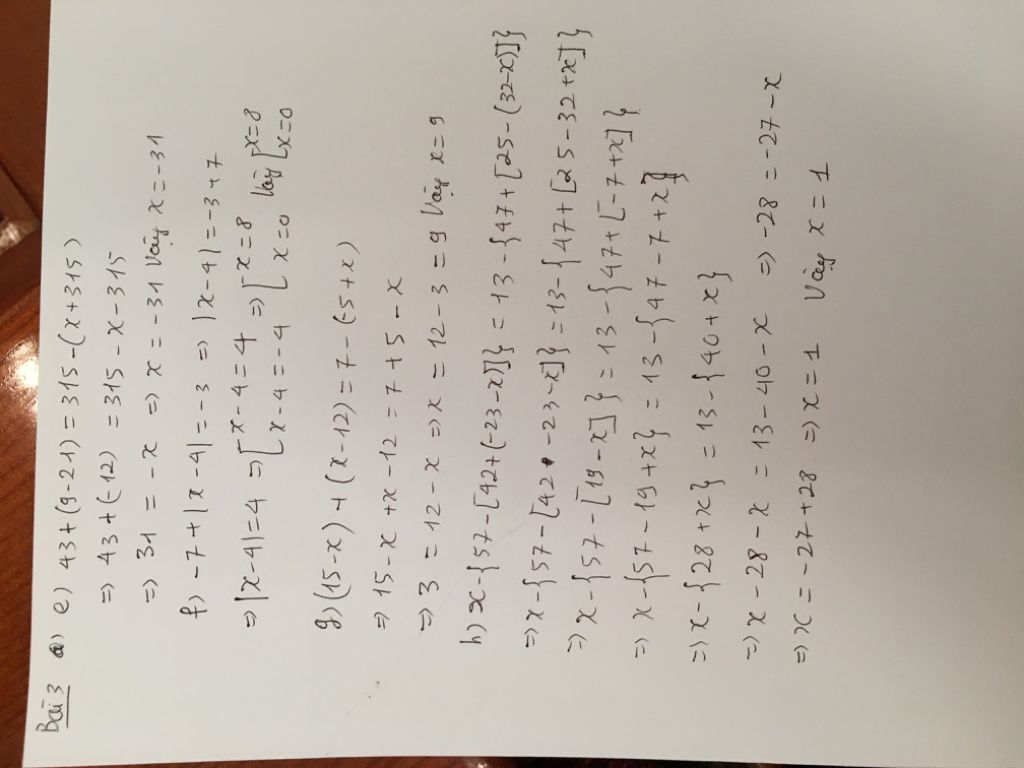 Bài 3 e) 43+(9-21) = 315-(x+315)
=> 43+(-12) = 315-x-315
=> 31 = -x => x = -31 Vậy x=-31
f) -7+|x-4|=-3 => |x-4|=-3+7
=> |x-4|=4 => [x-4=4 => [x=8 Vậy [x=8
x-4=-4 x=0 x=0
g) (15-x)+(x-12)=7-(-5+x)
=> 15-x+x-12=7+5-x
=> 3=12-x => x=12-3=9 Vậy x=9
h) x-{57-[42+(-23-x)]}=13-{47+[25-(32-x)]}
=> x-{57-[42-23-x]}=13-{47+[25-32+x]}
=> x-{57-[19-x]}=13-{47+[-7+x]}
=> x-{57-19+x}=13-{47-7+x}
=> x-{28+x}=13-{40+x}
=> x-28-x=13-40-x => -28=-27-x
=> x=-27+28 => x=1 Vậy x=1